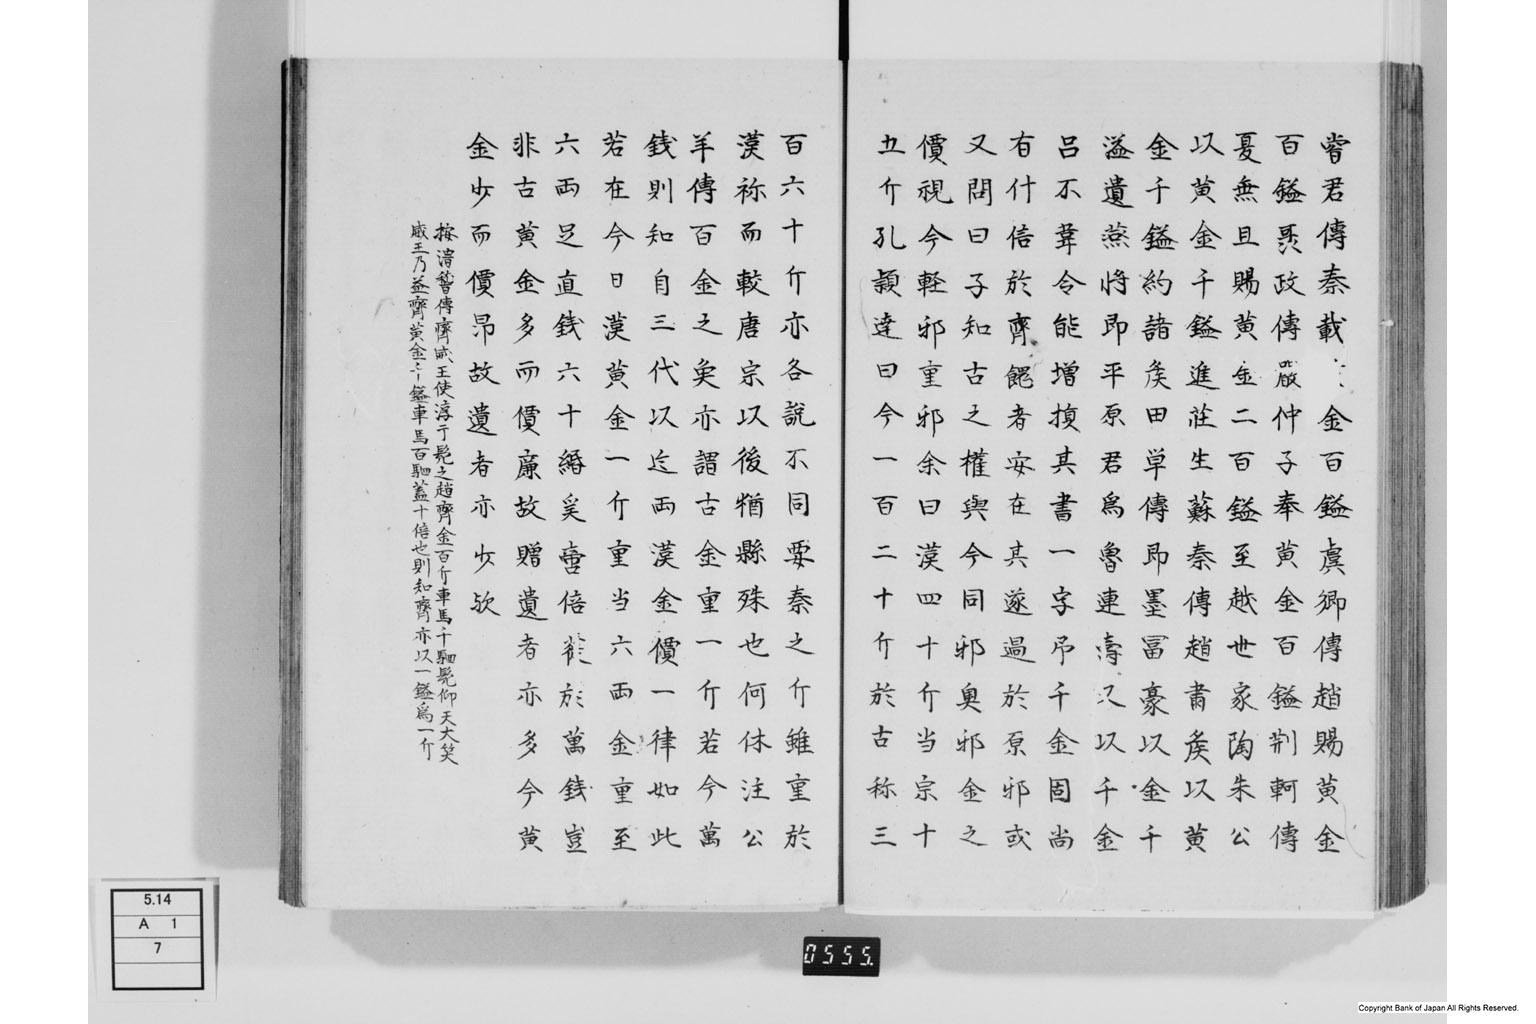 嘗君傳秦載金百鎰虞卿傳趙賜黄金
百鎰聶政傳嚴仲子奉黄金百鎰荆軻傳
夏無且賜黄金二百鎰至越世家陶朱公
以黄金千鎰進莊生蘇秦傳趙肅矦以黄
金千鎰約諸矦田单傳即墨冨豪以金千
溢遺燕將即平原君爲魯連壽又以千金
吕不韋令能增損其書一字予千金固尚
有什倍於齊餽者安在其遂過於原邪或
又問曰子知古之權與今同邪奥邪金之
價視今軽邪重邪余曰漢四十斤当宗十
五斤孔頴達曰今一百二十斤於古称三
百六十斤亦各説不同要秦之斤雖重於
漢祢而較唐宗以後猶縣殊也何休注公
羊傳百金之矣亦謂古金重一斤若今萬
銭則知自三代以迄両漢金價一律如此
若在今日漢黄金一斤重当六両金重至
六両足直銭六十緡奚啻倍蓰於萬銭豈
非古黄金多而價廉故贈遺者亦多今黄
金少而價昂故遺者亦少欤
按滑稽傳齊威王使淳于髡之趙齊金百斤車馬十駟髡仰天大笑
威王乃益齊黄金千鎰車馬百駟蓋十倍也則知齊亦以一鎰爲一斤
5.14
A 1
7
0555.
Copyright Bank of Japan All Rights Reserved.